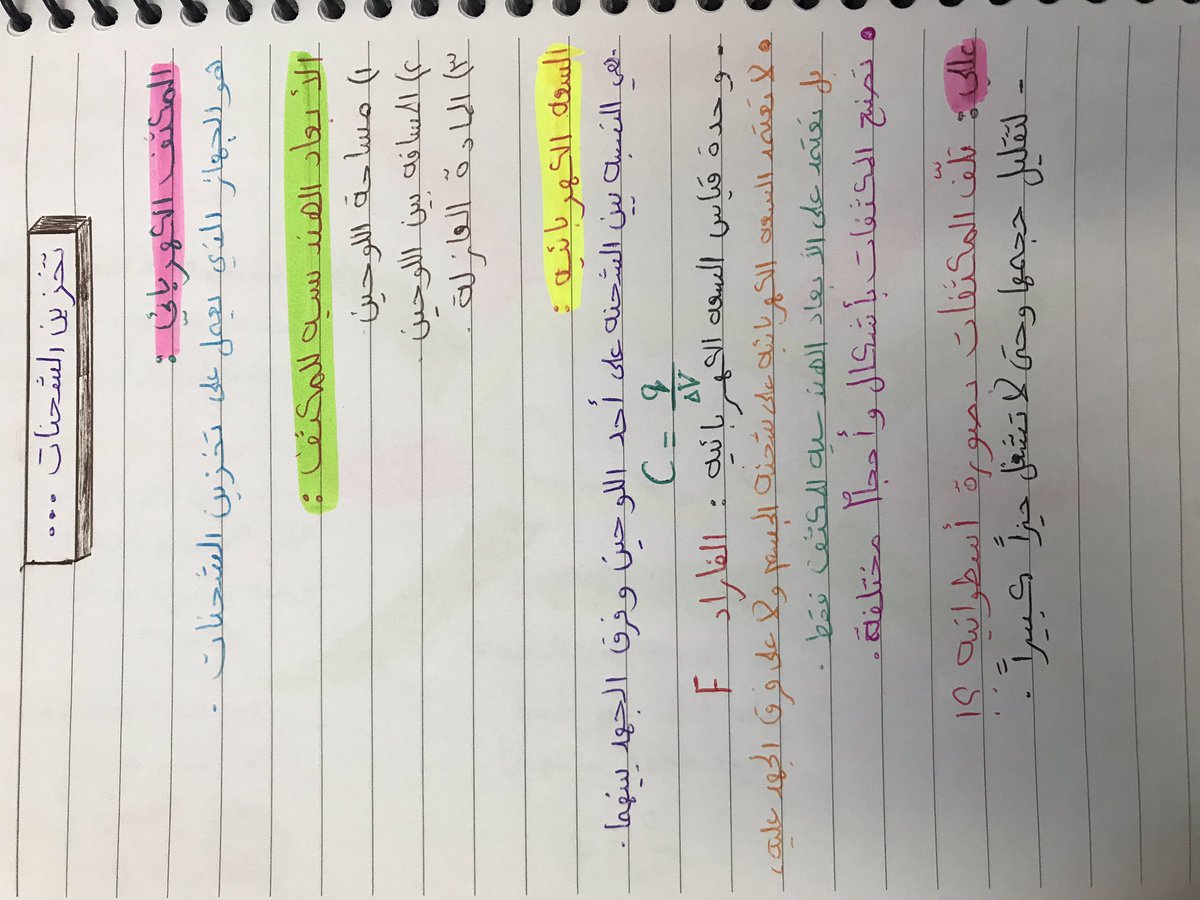 تخزين الشحنات ...
المكثف الكهربائي :
هو الجهاز الذي يعمل على تخزين الشحنات .
الأبعاد الهندسيه للمكثف :
١) مساحة اللوحين
٢) المسافه بين اللوحين .
٣) المادة العازلة .
السعه الكهربائيه :
هي النسبه بين الشحنه على أحد اللوحين وفرق الجهد بينهما .
C = q / ΔV
• وحدة قياس السعه الكهربائيه : الفاراد F
• لا تعتمد السعه الكهربائيه على شحنه الجسم ولا على فرق الجهد عليه ،
بل يعتمد على الأبعاد الهندسيه للمكثف فقط .
• تصنع المكثفات بأشكال وأحجام مختلفة .
عللي : تلف المكثفات بصورة أسطوانيه ؟!
- لتقليل حجمها وحتى لا تشغل حيزاً كبيراً .